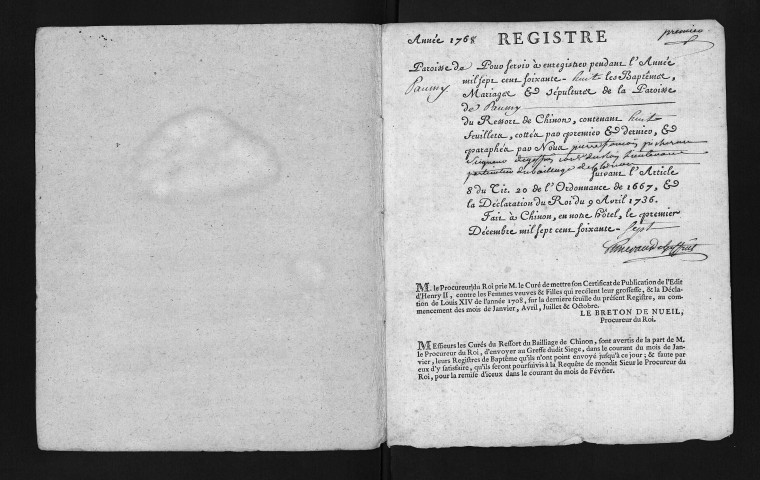 Année 1768 REGISTRE premier
Paroisse de Paumy
Pour servir à enregistrer pendant l'Année
mil sept cent soixante-huit les Baptêmes,
Mariages & sépultures de la Paroisse
de Paumy
du Ressort de Chinon, contenant huit
feuillets, cottés par premier & dernier, &
paraphés par Nous pierre francois
Seigneur
particulier du bailliage de Chinon
suivant l'Article
8 du Tit. 20 de l'Ordonnance de 1667, &
la Déclaration du Roi du 9 Avril 1736.
Fait à Chinon, en notre hôtel, le premier
Décembre mil sept cent soixante-sept
M. le Procureur du Roi prie M. le Curé de mettre son Certificat de Publication de l'Edit
d'Henry II, contre les Femmes veuves & Filles qui recélent leur grossesse, & la Déclara-
tion de Louis XIV de l'année 1708, sur la derniere feuille du présent Registre, au com-
mencement des mois de Janvier, Avril, Juillet & Octobre.
LE BRETON DE NUEIL,
Procureur du Roi.
MEssieurs les Curés du Ressort du Bailliage de Chinon, sont avertis de la part de M.
le Procureur du Roi, d'envoyer au Greffe dudit Siege, dans le courant du mois de Jan-
vier, leurs Registres de Baptême qu'ils n'ont point envoyé jusqu'à ce jour; & faute par
eux d'y satisfaire, qu'ils seront poursuivis à la Requête de mondit Sieur le Procureur du
Roi, pour la remise d'iceux dans le courant du mois de Février.